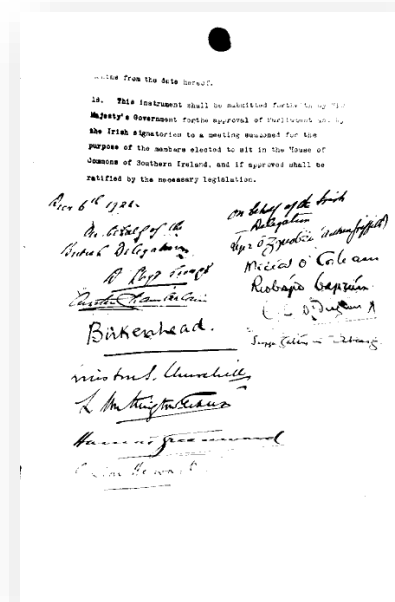 from the date hereof.
18. This instrument shall be submitted forthwith by His
Majesty's Government forthe approval of Parliament and by
the Irish signatories to a meeting summoned for the
purpose of the members elected to sit in the House of
Commons of Southern Ireland, and if approved shall be
ratified by the necessary legislation.
Decr 6th 1921.
On behalf of the
British Delegation
D Lloyd George
Austen Chamberlain
Birkenhead.
Winston S. Churchill
L Worthington-Evans
Hamar Greenwood
Gordon Hewart
On behalf of the Irish
Delegation
Art Ó Gríobhtha (Arthur Griffith)
Mícheál Ó Coileain
Riobárd Bartún